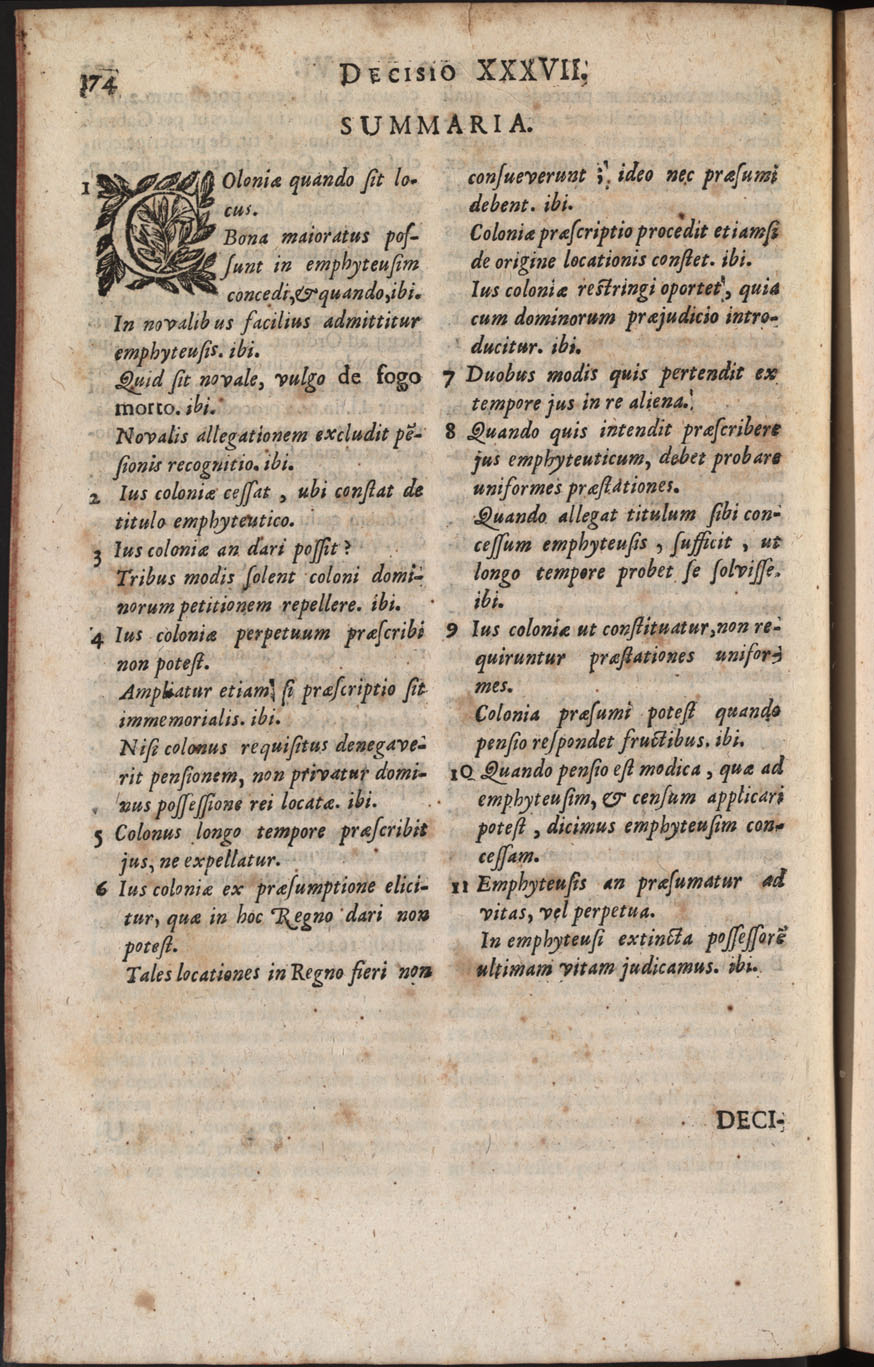 174
DECISIO XXXVII.
SUMMARIA.
1 COloniæ quando ſit lo-
cus.
Bona maioratus poſ-
ſunt in emphyteuſim
concedi, & quando, ibi.
In novalibus facilius admittitur
emphyteuſis. ibi.
Quid ſit novale, vulgo de fogo
morto. ibi.
Novalis allegationem excludit pē-
ſionis recognitio. ibi.
2 Ius coloniæ ceſſat, ubi conſtat de
titulo emphyteutico.
3 Ius coloniæ an dari poſſit?
Tribus modis ſolent coloni domi-
norum petitionem repellere. ibi.
4 Ius coloniæ perpetuum præſcribi
non poteſt.
Ampliatur etiam, ſi præſcriptio ſit
immemorialis. ibi.
Niſi colonus requiſitus denegave-
rit penſionem, non privatur domi-
nus poſſeſſione rei locatæ. ibi.
5 Colonus longo tempore præſcribit
jus, ne expellatur.
6 Ius coloniæ ex præſumptione elici-
tur, quæ in hoc Regno dari non
poteſt.
Tales locationes in Regno fieri non
conſueverunt; ideo nec præſumi
debent. ibi.
Coloniæ præſcriptio procedit etiamſi
de origine locationis conſtet. ibi.
Ius coloniæ reſtringi oportet, quia
cum dominorum præjudicio intro-
ducitur. ibi.
7 Duobus modis quis pertendit ex
tempore jus in re aliena.
8 Quando quis intendit præſcribere
jus emphyteuticum, debet probare
uniformes præſtationes.
Quando allegat titulum ſibi con-
ceſſum emphyteuſis, ſufficit, ut
longo tempore probet ſe ſolviſſe.
ibi.
9 Ius coloniæ ut conſtituatur, non re-
quiruntur præſtationes unifor-
mes.
Colonia præſumi poteſt quando
penſio reſpondet fructibus. ibi.
10 Quando penſio eſt modica, quæ ad
emphyteuſim, & cenſum applicari
poteſt, dicimus emphyteuſim con-
ceſſam.
11 Emphyteuſis an præſumatur ad
vitas, vel perpetua.
In emphyteuſi extincta poſſeſſorē
ultimam vitam judicamus. ibi.
DECI-